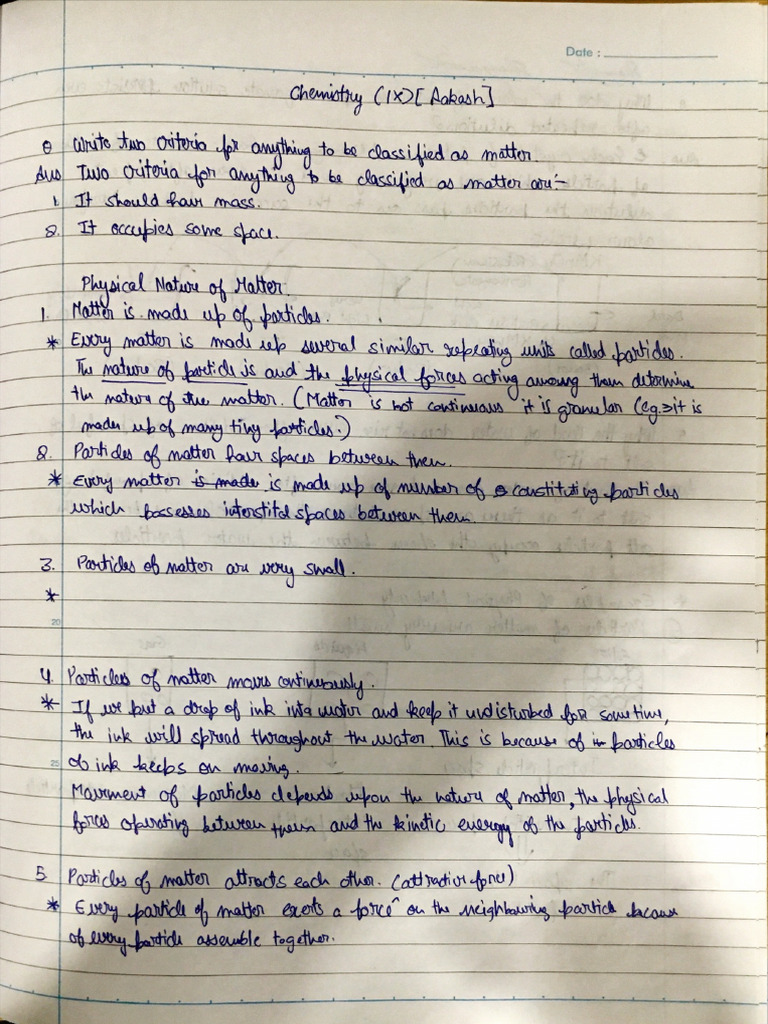 Date :
Chemistry (IX) [Aakash]
Q Write two criteria for anything to be classified as matter.
Ans Two criteria for anything to be classified as matter are:-
1. It should have mass.
2. It occupies some space.
Physical Nature of Matter.
1. Matter is made up of particles.
* Every matter is made up several similar repeating units called particles.
The nature of particle is and the physical forces acting among them determine
the nature of the matter. (Matter is not continuous it is granular (eg.⇒it is
made up of many tiny particles.)
2. Particles of matter have spaces between them.
* Every matter is made is made up of number of constituting particles
which possesses interstital spaces between them.
3. Particles of matter are very small.
*
20
4. Particles of matter moves continuously.
* If we put a drop of ink into water and keep it undisturbed for sometime,
the ink will spread throughout the water. This is because of particles
25 of ink keeps on moving.
Movement of particles depends upon the nature of matter, the physical
forces operating between them and the kinetic energy of the particles.
5. Particles of matter attracts each other. (attractive force)
* Every particle of matter exerts a force on the neighbouring particle because
of every particle assemble together.